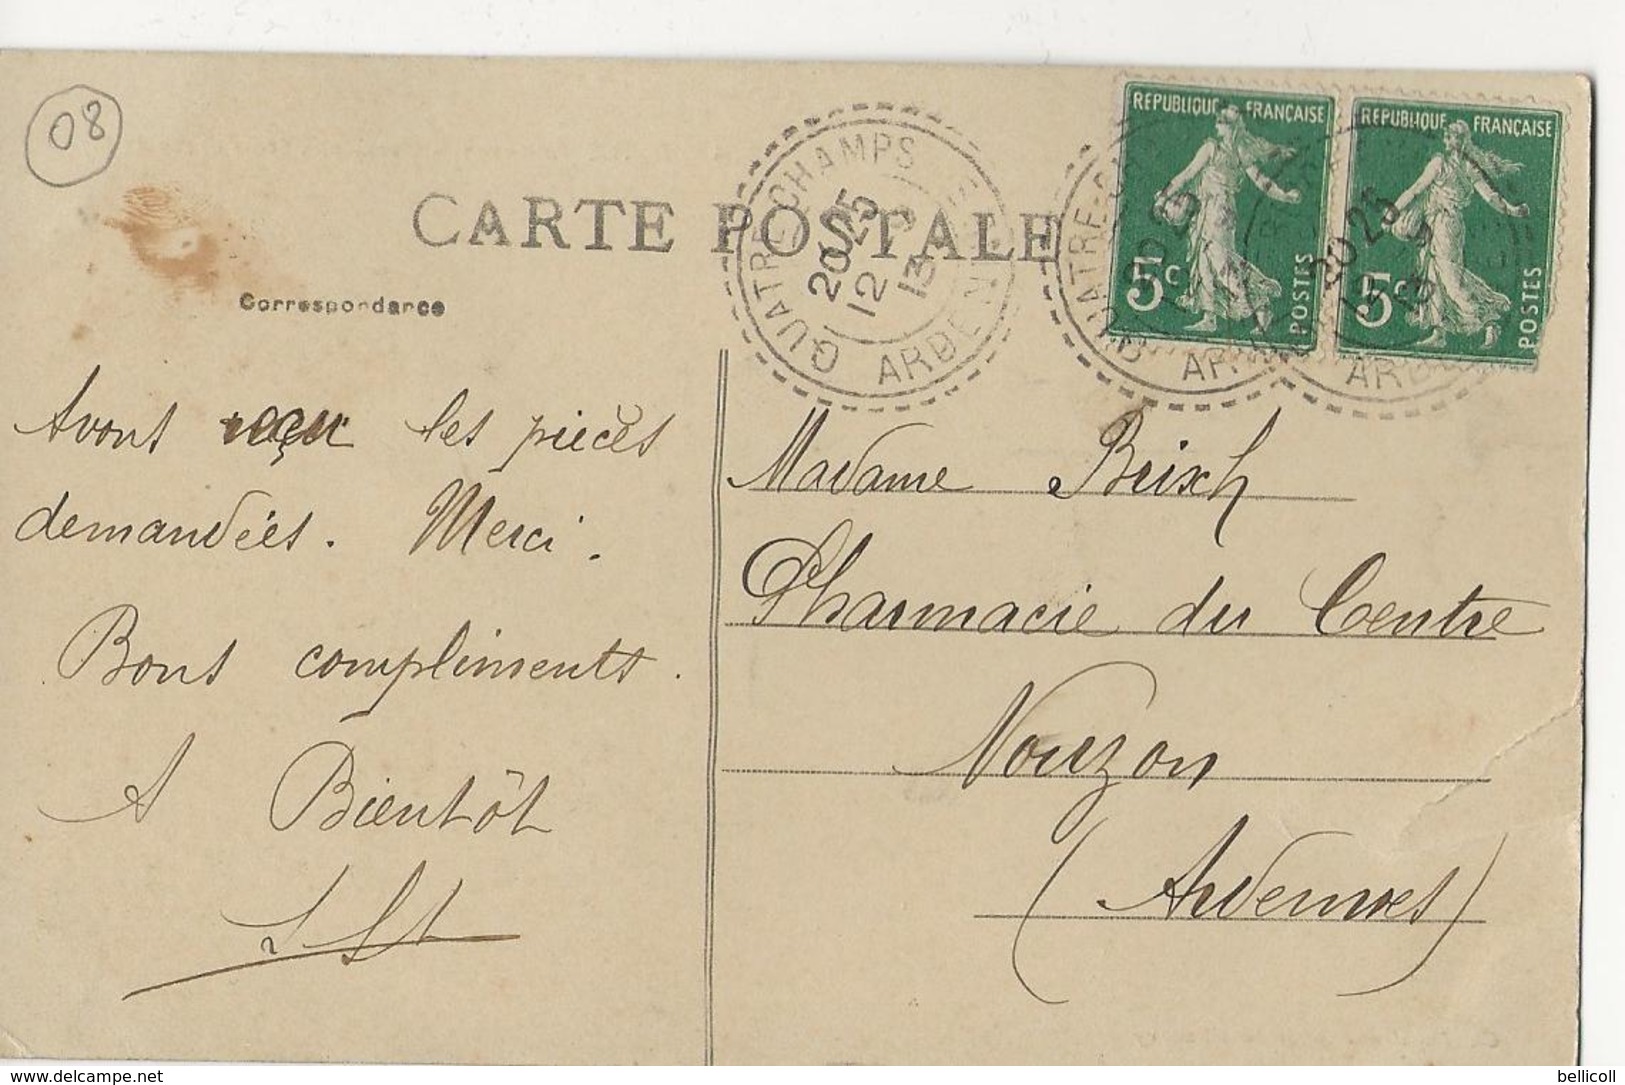 08
CARTE POSTALE
Correspondance
QUATRE-CHAMPS
20 25
12 5
13
ARDENNES
REPUBLIQUE FRANÇAISE
5c
POSTES
REPUBLIQUE FRANÇAISE
5c
POSTES
Avons reçu les pièces
demandées. Merci.
Bons compliments.
A Bientôt
Madame Brixh
Pharmacie du Centre
Nouzon
(Ardennes)
bellicoll
www.delcampe.net